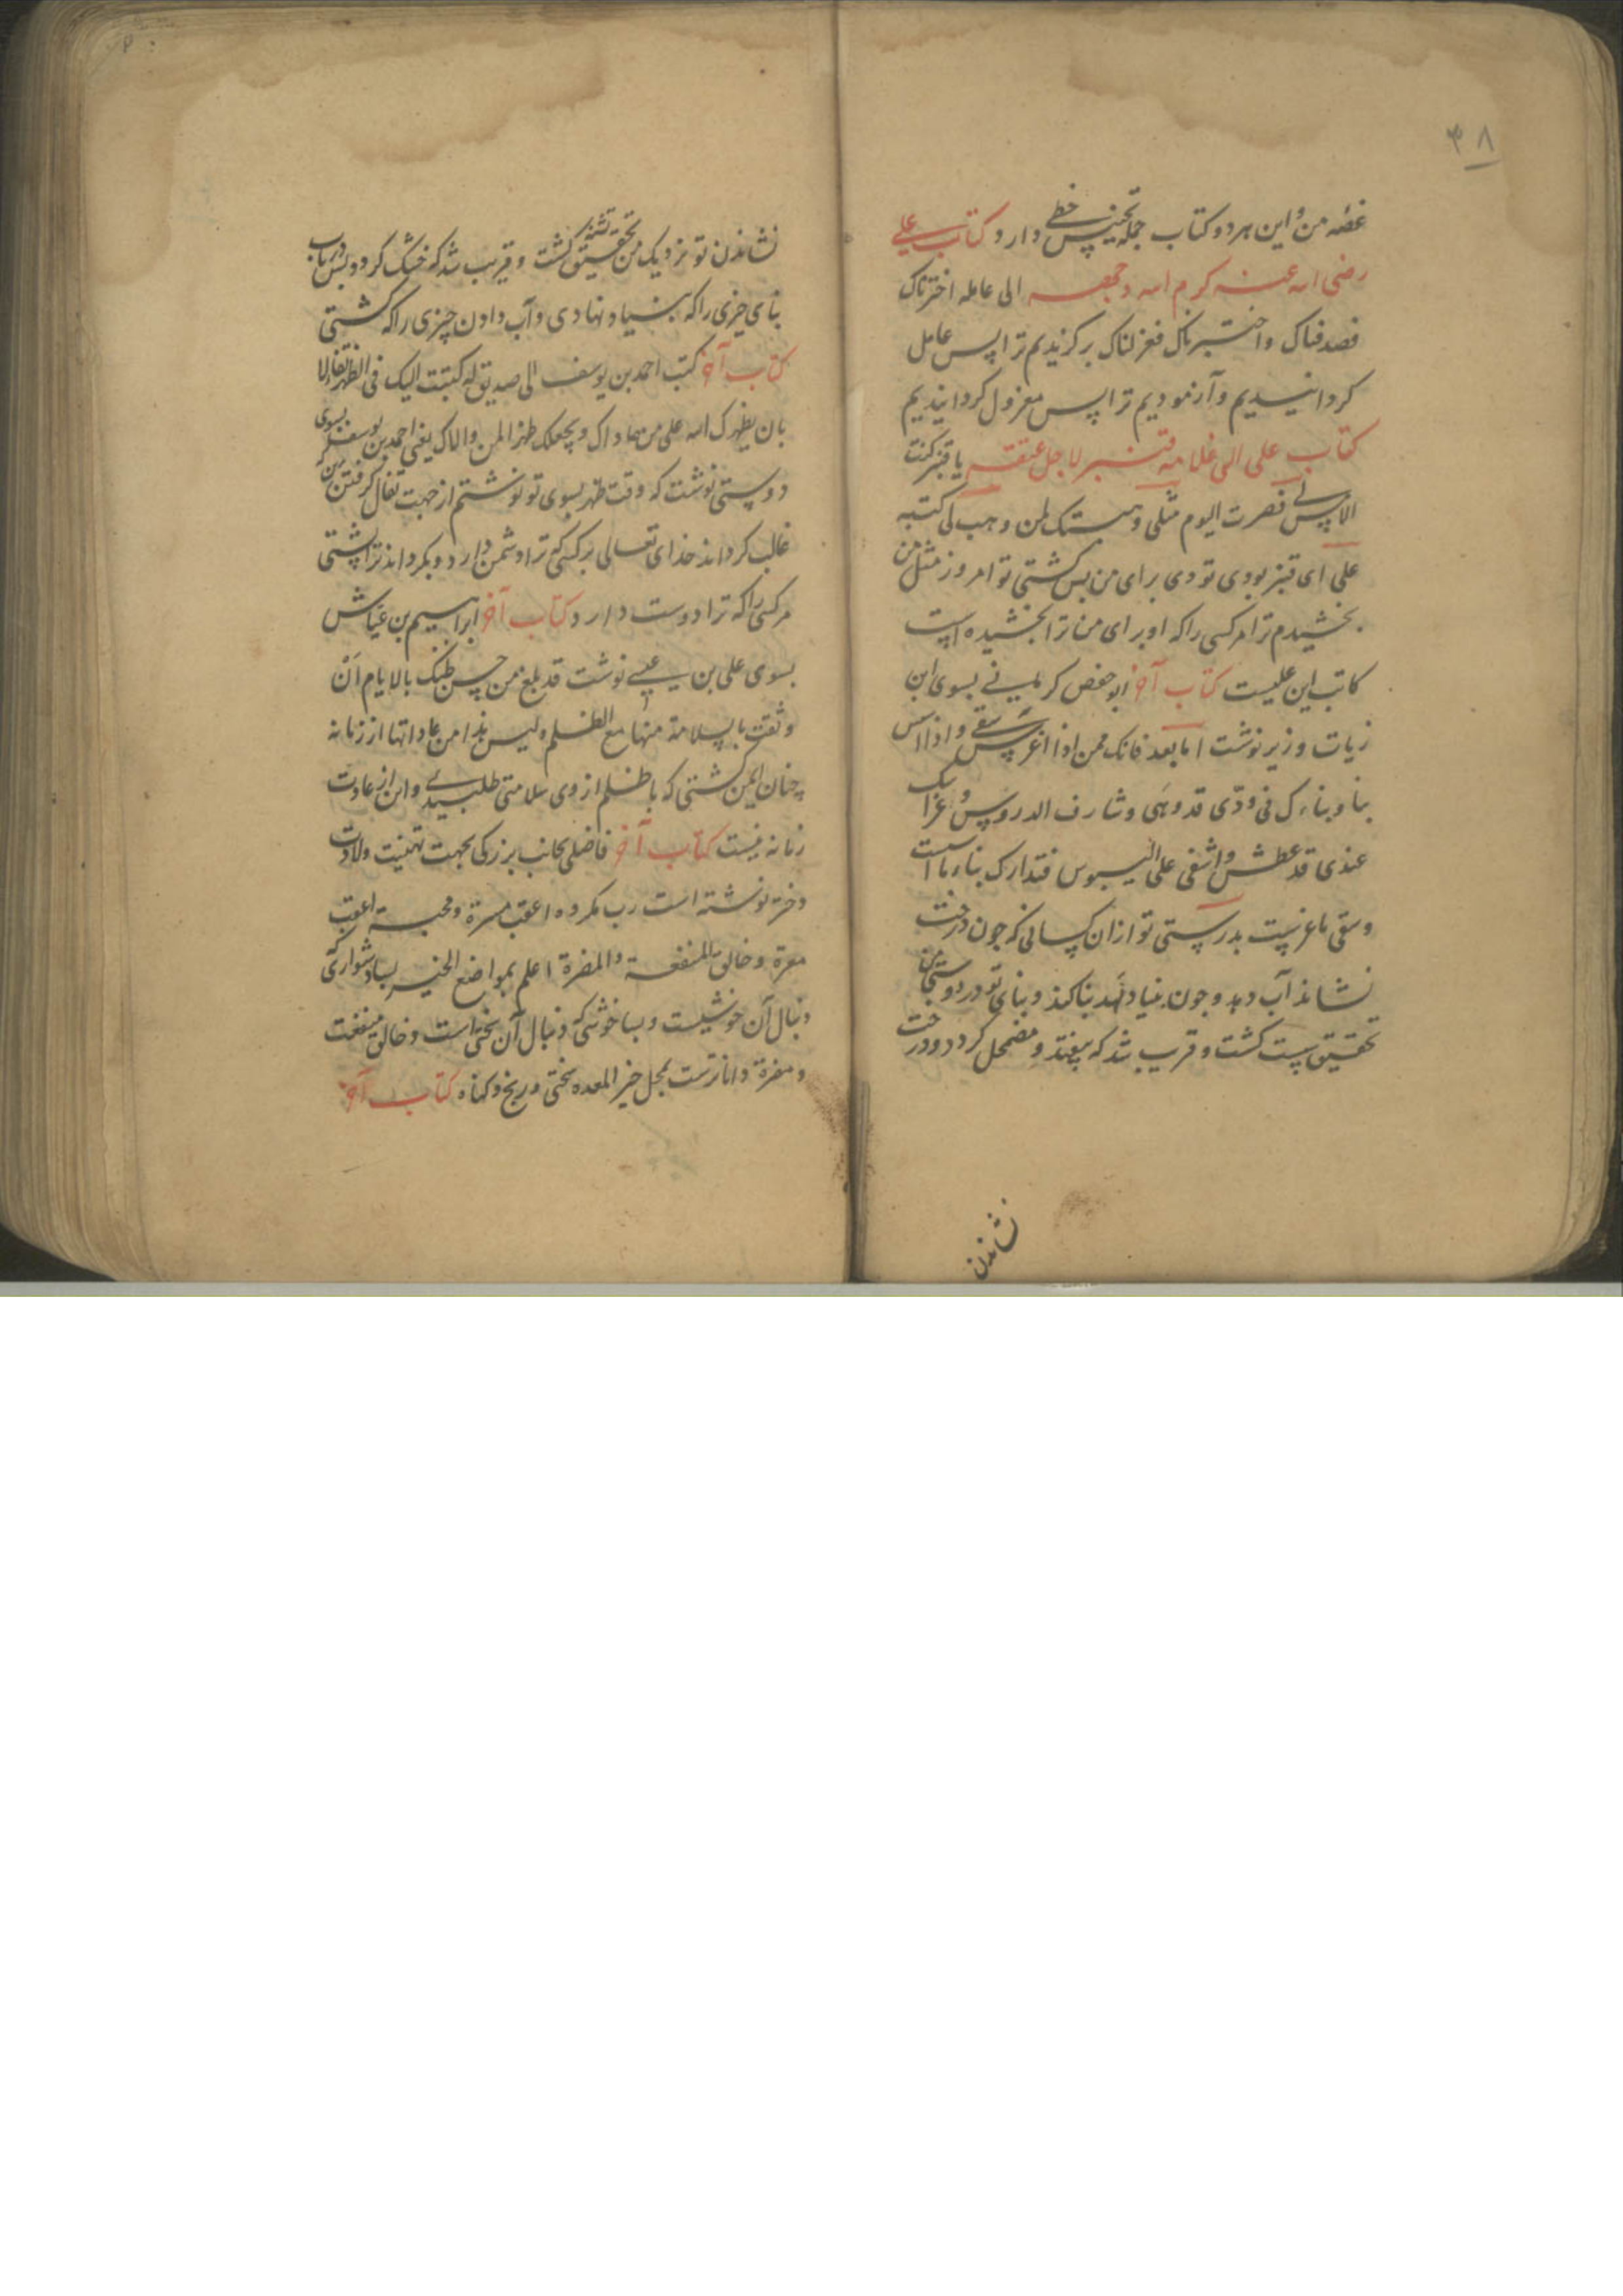 ۳۸
غصّه من و این هر دو کتاب جمله تجنیس خطی دارد کتاب علی
رضی الله عنه کرم الله وجهه الی عامله اخترناک
فصدفناک واختبرناک فعزلناک برگزیدیم ترا پس عامل
کردانیدیم و آزمودیم ترا پس معزول کردانیدیم
کتاب علی الی غلامه قنبر لاجل عتقه یا قنبر کنت
الامس لی فصرت الیوم مثلی وهبتک لمن وهبک لی کتبه
علی ای قنبر بودی تو دی برای من پس کشتی تو امروز مثل من
بخشیدم ترا مر کسی را که او برای من ترا بخشیده است
کاتب این علیست کتاب آخر ابو حفص کرمانی بسوی ابن
زیات وزیر نوشت اما بعد فانک ممن اذا اغرس سقی و اذا اسس
بنا و بناءک فی ودّی قد وهَی وشارف الدروس و غراسک
عندی قد عطش و اشفی علی الیبوس فتدارک بناء ما اسست
وسقی ما غرست بدرستی تو ازان کسانی که جون درخت
نشاند آب دهد و جون بنیاد نهد بنا کند و بنای تو در دوستی من
تحقیق سست کشت و قریب شد که بیفتد و مضمحل کردد و درخت
نشاندن
نشاندن تو نزدیک من تحقیق تشنه کشت و قریب شد که خشک کردد پس دریاب
بنای چیزی را که بنیاد نهادی و آب دادن چیزی را که کشتی
کتاب آخر کتب احمد بن یوسف الی صدیق له کتبت الیک فی الظهر تفاءلا
بان یظهرک الله علی من عاداک ویجعلک ظهرا لمن والاک یعنی احمد بن یوسف بسوی
دوستی نوشت که وقت ظهر بسوی تو نوشتم از جهت تفال کرفتن
غالب کرداند خدای تعالی بر کسی که ترا دشمن دارد و بکرداند ترا پشتی
مر کسی را که ترا دوست دارد کتاب آخر ابراهیم بن عیاش
بسوی علی بن عیسی نوشت قد بلغ من حسن ظنک بالایام اَنْ
وثقت بالسلامة منها مع الظلم ولیس هذا من عاداتها از زمانه
چنان ایمن کشتی که با ظلم از وی سلامتی طلبیدی و این از عادت
زمانه نیست کتاب آخر فاضلی بجانب بزرکی بجهت تهنیت ولادت
دختر نوشته است رب مکروه اعقب مسرة ومحبة اعقبت
معرة وخالق المنفعة والمضرة اعلم بمواضع الخیر بسا دشواری که
دنبال آن خوشیست و بسا خوشی که دنبال آن سختی است و خالق منفعت
و مضرة داناترست بمحل خیر المعره سختی و رنج و کناه کتاب آخر